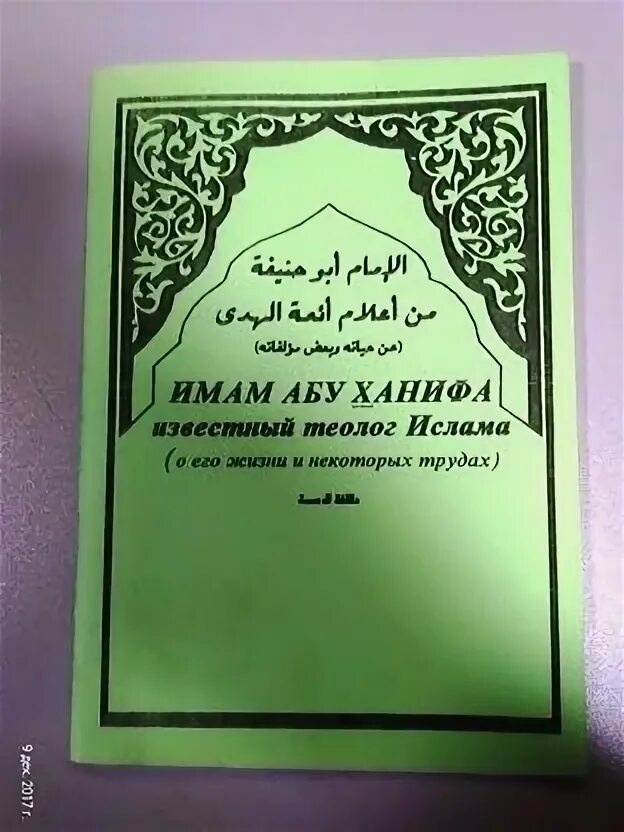 الإمام أبو حنيفة
من أعلام أئمة الهدى
(عن حياته وبعض مؤلفاته)
ИМАМ АБУ ХАНИФА
известный теолог Ислама
(о его жизни и некоторых трудах)
9 дек. 2017 г.